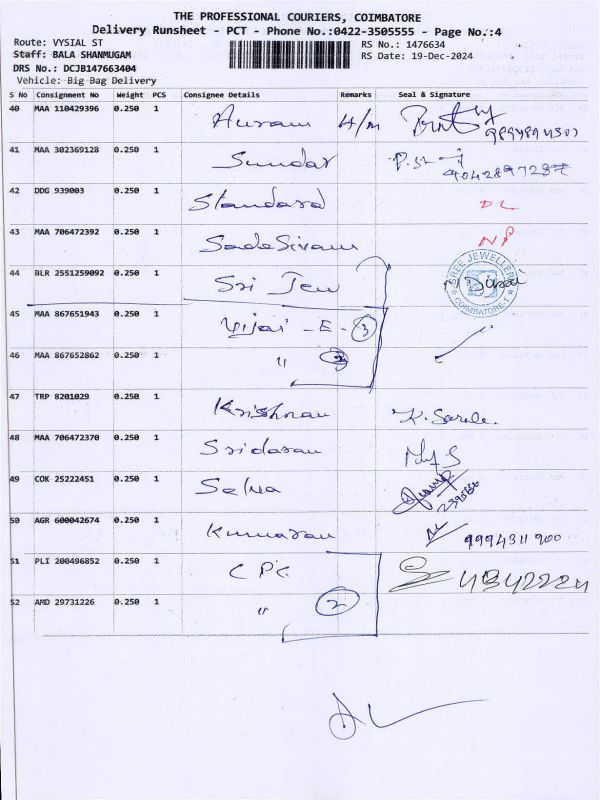 THE PROFESSIONAL COURIERS, COIMBATORE
Delivery Runsheet - PCT - Phone No.:0422-3505555 - Page No.:4
Route: VYSIAL ST RS No.: 1476634
Staff: BALA SHANMUGAM RS Date: 19-Dec-2024
DRS No.: DCJB147663404
Vehicle: Big Bag Delivery
S No Consignment No Weight PCS Consignee Details Remarks Seal & Signature
40 MAA 110429396 0.250 1 H/m
41 MAA 302369128 0.250 1 Sundar
42 DDG 939003 0.250 1 Standard DL
43 MAA 706472392 0.250 1 SadaSivam NP
44 BLR 2551259092 0.250 1 Sri Jew SREE JEWELLERY COIMBATORE-1
45 MAA 867651943 0.250 1 Vijai - E - 3
46 MAA 867652862 0.250 1 "
47 TRP 8201029 0.250 1 Krishnan
48 MAA 706472370 0.250 1 Sridaran
49 COK 25222451 0.250 1 Selva
50 AGR 600042674 0.250 1 Kumaran 9994311900
51 PLI 200496852 0.250 1 CPC
52 AMD 29731226 0.250 1 " 2